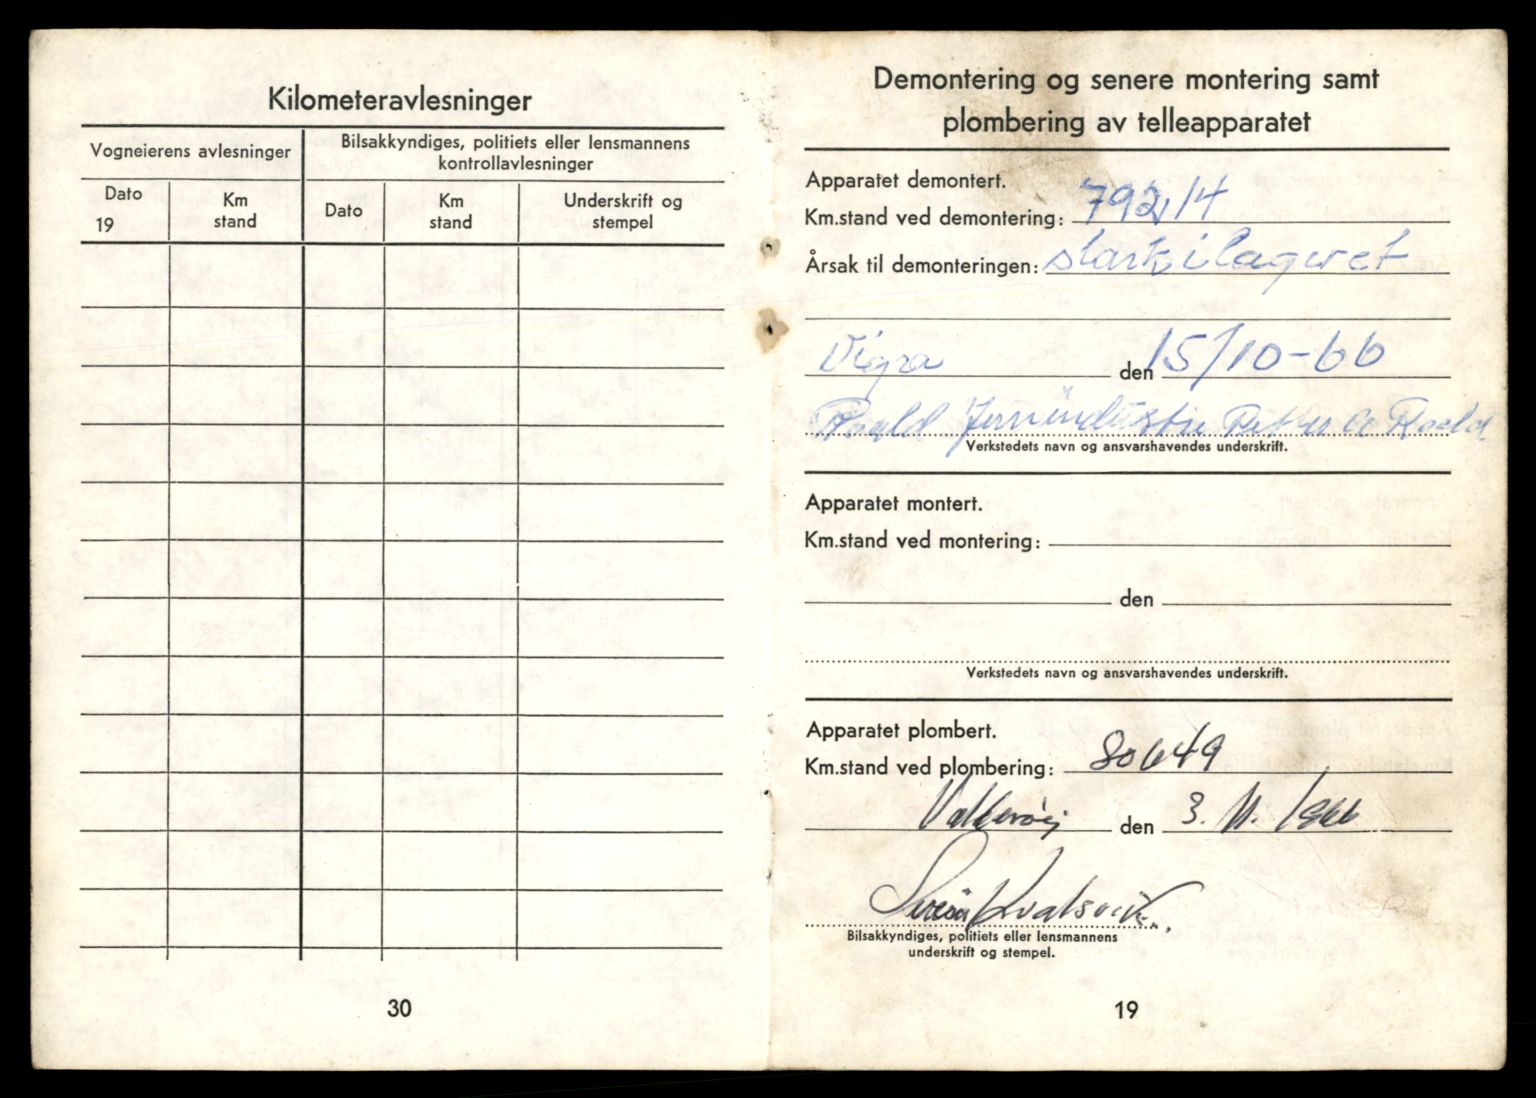 Kilometeravlesninger
Vogneierens avlesninger
Bilsakkyndiges, politiets eller lensmannens
kontrollavlesninger
Dato
19
Km
stand
Dato
Km
stand
Underskrift og
stempel
30
Demontering og senere montering samt
plombering av telleapparatet
Apparatet demontert.
Km.stand ved demontering: 79214
Årsak til demonteringen: slark i lageret
Vigra den 15/10-66
Roald Jernindustri Petter A Roald
Verkstedets navn og ansvarshavendes underskrift.
Apparatet montert.
Km.stand ved montering:
den
Verkstedets navn og ansvarshavendes underskrift.
Apparatet plombert.
Km.stand ved plombering: 80649
Valderøy den 3. 11. 1966
Bilsakkyndiges, politiets eller lensmannens
underskrift og stempel.
19